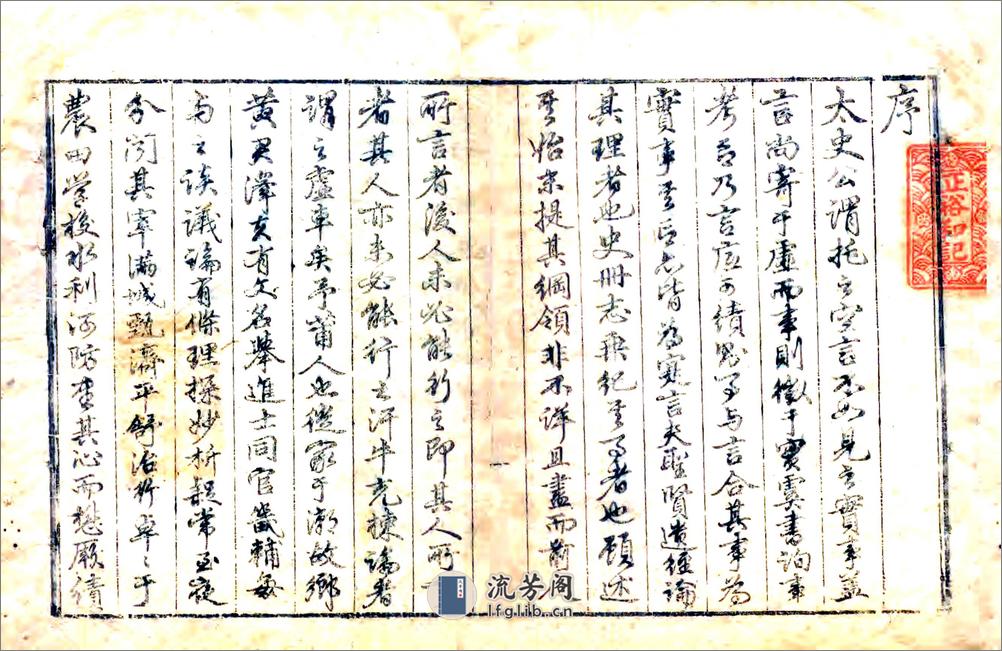 序
太史公謂托之空言不如見之實事蓋
言尚寄于虛而事則徵于實虞書詢事
考言乃言底可績恐事与言合其事為
實事其言亦皆為實言夫聖賢遺經論
其理者也史冊志乘紀其事者也顧述
其提其綱領非不詳且盡而前
所言者後人未必能行之即其人所言
者其人亦未必能行之汗牛充棟識者
謂之虛車矣予莆人也從家于浙故鄉
黃君澤夫有文名舉進士同官畿輔每
与之談議論有條理探妙析疑常至夜
分間其宰滿城甄濟平舒治行卓々于
農田學校水利河防者其心而懋厥績
正裕和記
流芳阁
lfglib.cn